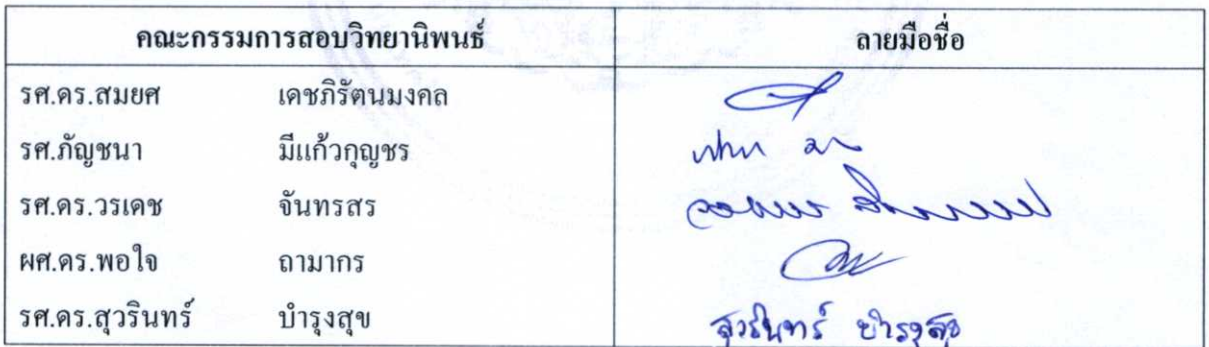 คณะกรรมการสอบวิทยานิพนธ์ ลายมือชื่อ
รศ.ดร.สมยศ เดชภิรัตนมงคล
รศ.ภัญชนา มีแก้วกุญชร
รศ.ดร.วรเดช จันทรสร
ผศ.ดร.พอใจ ถามากร
รศ.ดร.สุวรินทร์ บำรุงสุข สุวรินทร์ บำรุงสุข